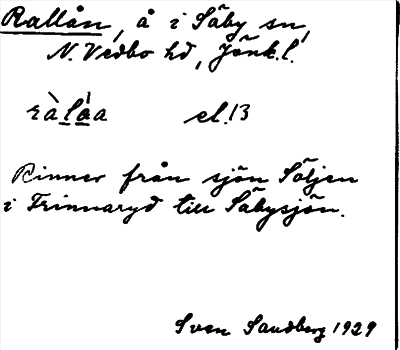 Rallån, å i Säby sn,
N. Vedbo hd, Jönk.l.
ràla̍a el.13
Rinner från sjön Söljen
i Frinnaryd till Säbysjön.
Sven Sandberg 1929